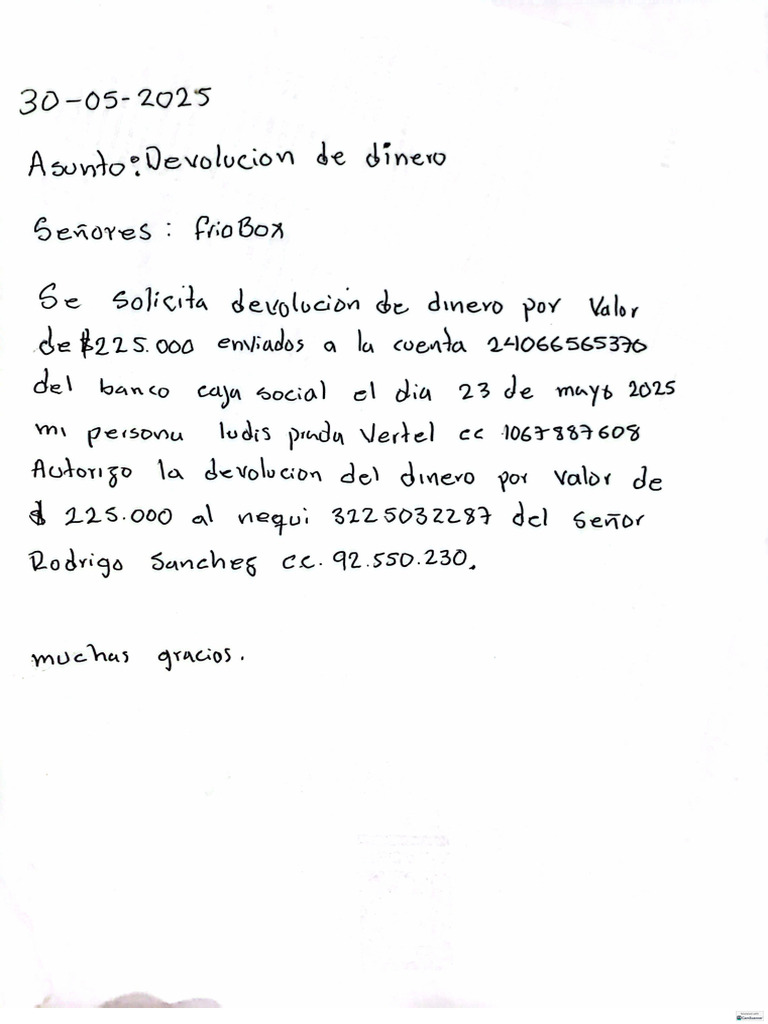 30-05-2025
Asunto: Devolucion de dinero
Señores: frioBox
Se solicita devolución de dinero por valor
de $225.000 enviados a la cuenta 24066565370
del banco caja social el dia 23 de mayo 2025
mi persona ludis prada Vertel cc 1067887608
Autorizo la devolucion del dinero por valor de
$ 225.000 al nequi 3225032287 del señor
Rodrigo Sanchez cc. 92.550.230.
muchas gracios.
CamScanner